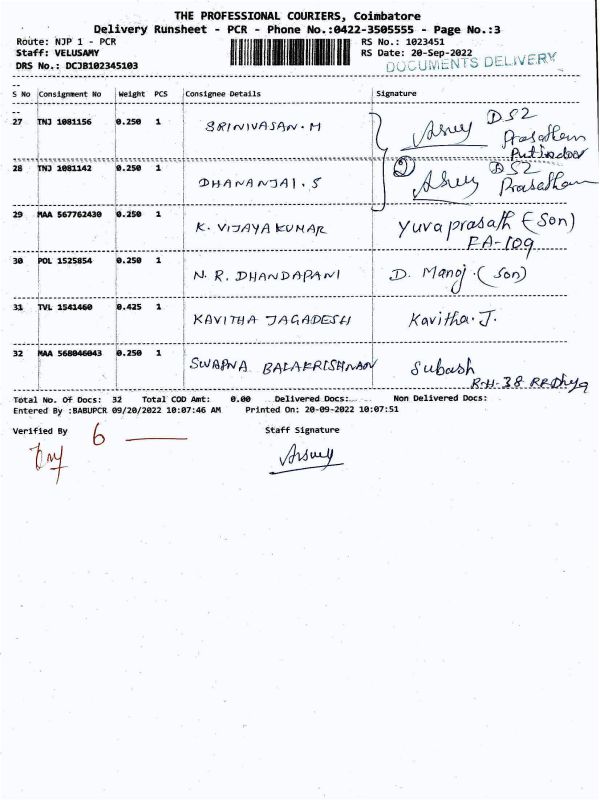 THE PROFESSIONAL COURIERS, Coimbatore
Delivery Runsheet - PCR - Phone No.:0422-3505555 - Page No.:3
Route: NJP 1 - PCR RS No.: 1023451
Staff: VELUSAMY RS Date: 20-Sep-2022
DRS No.: DCJB102345103 DOCUMENTS DELIVERY
S No Consignment No Weight PCS Consignee Details Signature
27 TNJ 1081156 0.250 1 SRINIVASAN.M DS2
28 TNJ 1081142 0.250 1 DHANANJAI.S DS2
29 MAA 567762430 0.250 1 K. VIJAYA KUMAR Yuva prasath (Son)
FA-109
30 POL 1525854 0.250 1 N.R. DHANDAPANI D. Manoj.(Son)
31 TVL 1541460 0.425 1 KAVITHA JAGADESH Kavitha.J.
32 MAA 568046043 0.250 1 SWAPNA BALAKRISHNAN Subash
R.H-38
Total No. Of Docs: 32 Total COD Amt: 0.00 Delivered Docs: Non Delivered Docs:
Entered By :BABUPCR 09/20/2022 10:07:46 AM Printed On: 20-09-2022 10:07:51
Verified By 6 Staff Signature